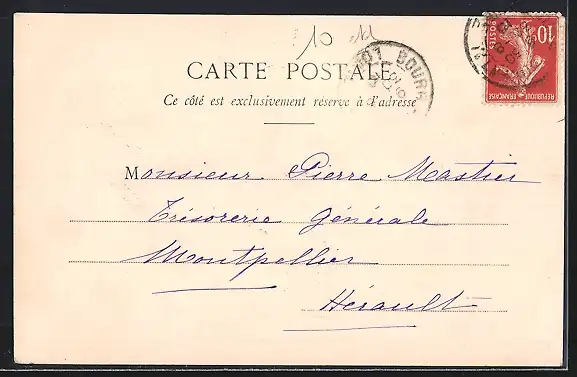 10
CARTE POSTALE
Ce côté est exclusivement réservé à l'adresse
Monsieur Pierre Mastier
Trésorerie Générale
Montpellier
Hérault
10c
POSTES
REPUBLIQUE FRANÇAISE